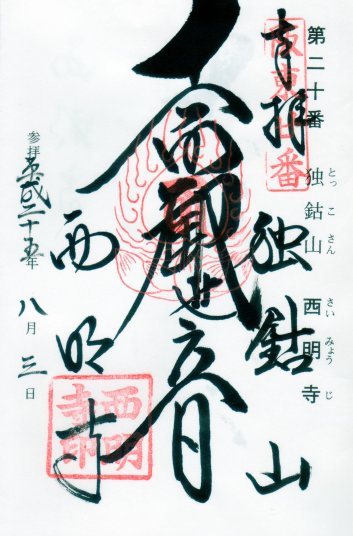 第二十番 独鈷山 西明寺
とっこさん さいみょうじ
奉拝
坂東二十番
独鈷山
十一面観世音
西明寺
西明寺印
参拝 平成二十五年 八月 三日